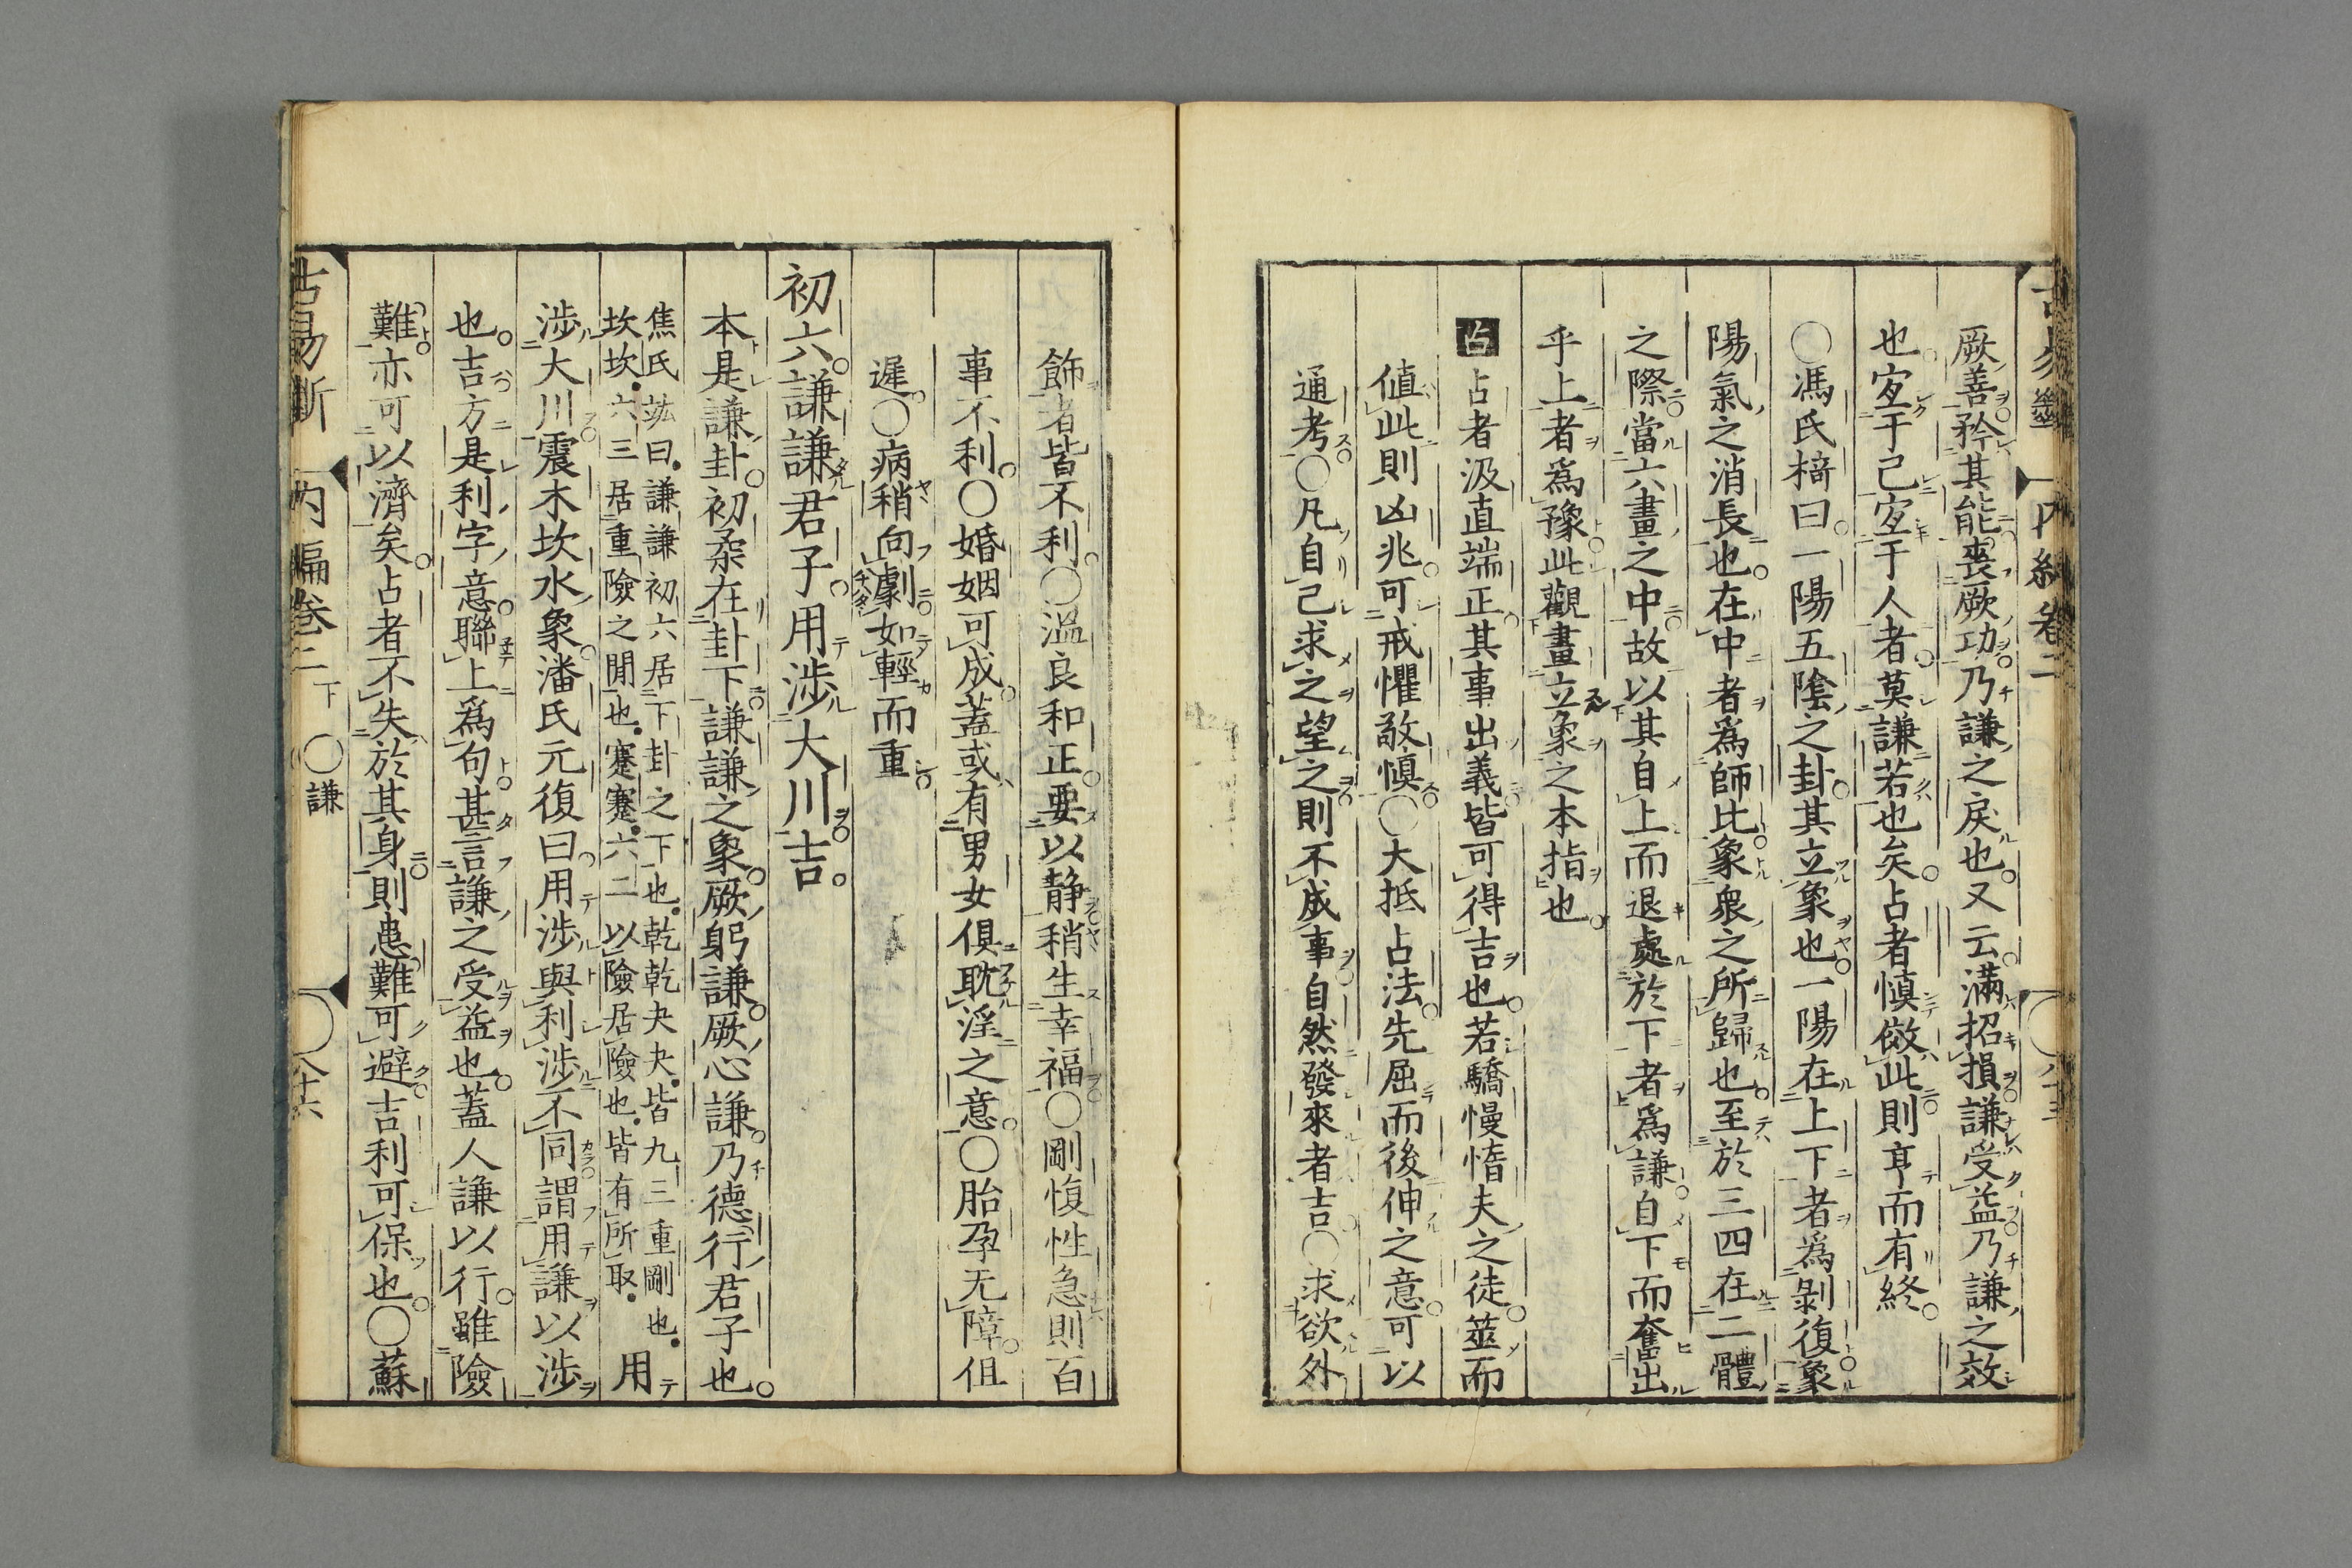 厥善矜其能喪厥功乃謙之戾也又云滿招損謙受益乃謙之效
也宜于己宜于人者莫謙若也矣占者慎傚此則亨而有終
○馮氏椅曰一陽五陰之卦其立象也一陽在上下者爲剝復象
陽氣之消長也在中者爲師比象衆之所歸也至於三四在二體
之際當六畫之中故以其自上而退處於下者爲謙自下而奮出
乎上者爲豫此觀畫立象之本指也
占占者汲直端正其事出義皆可得吉也若驕慢惰夫之徒筮而
値此則凶兆可戒懼敬慎○大抵占法先屈而後伸之意可以
通考○凡自己求之望之則不成事自然發來者吉○求欲外
飾者皆不利○溫良和正要以静稍生幸福○剛愎性急則百
事不利○婚姻可成蓋或有男女俱耽淫之意○胎孕无障但
遲○病稍向劇如輕而重
初六謙謙君子用涉大川吉
本是謙卦初柔在卦下謙謙之象厥躬謙厥心謙乃德行君子也
焦氏竑曰謙謙初六居下卦之下也乾乾夬夬皆九三重剛也
坎坎六三居重險之閒也蹇蹇六二以險居險也皆有所取用
涉大川震木坎水象潘氏元復曰用涉與利涉不同謂用謙以涉
也吉方是利字意聯上爲句甚言謙之受益也蓋人謙以行雖險
難亦可以濟矣占者不失於其身則患難可避吉利可保也○蘇
古易斷 內編卷二下 ○謙 ○八十六